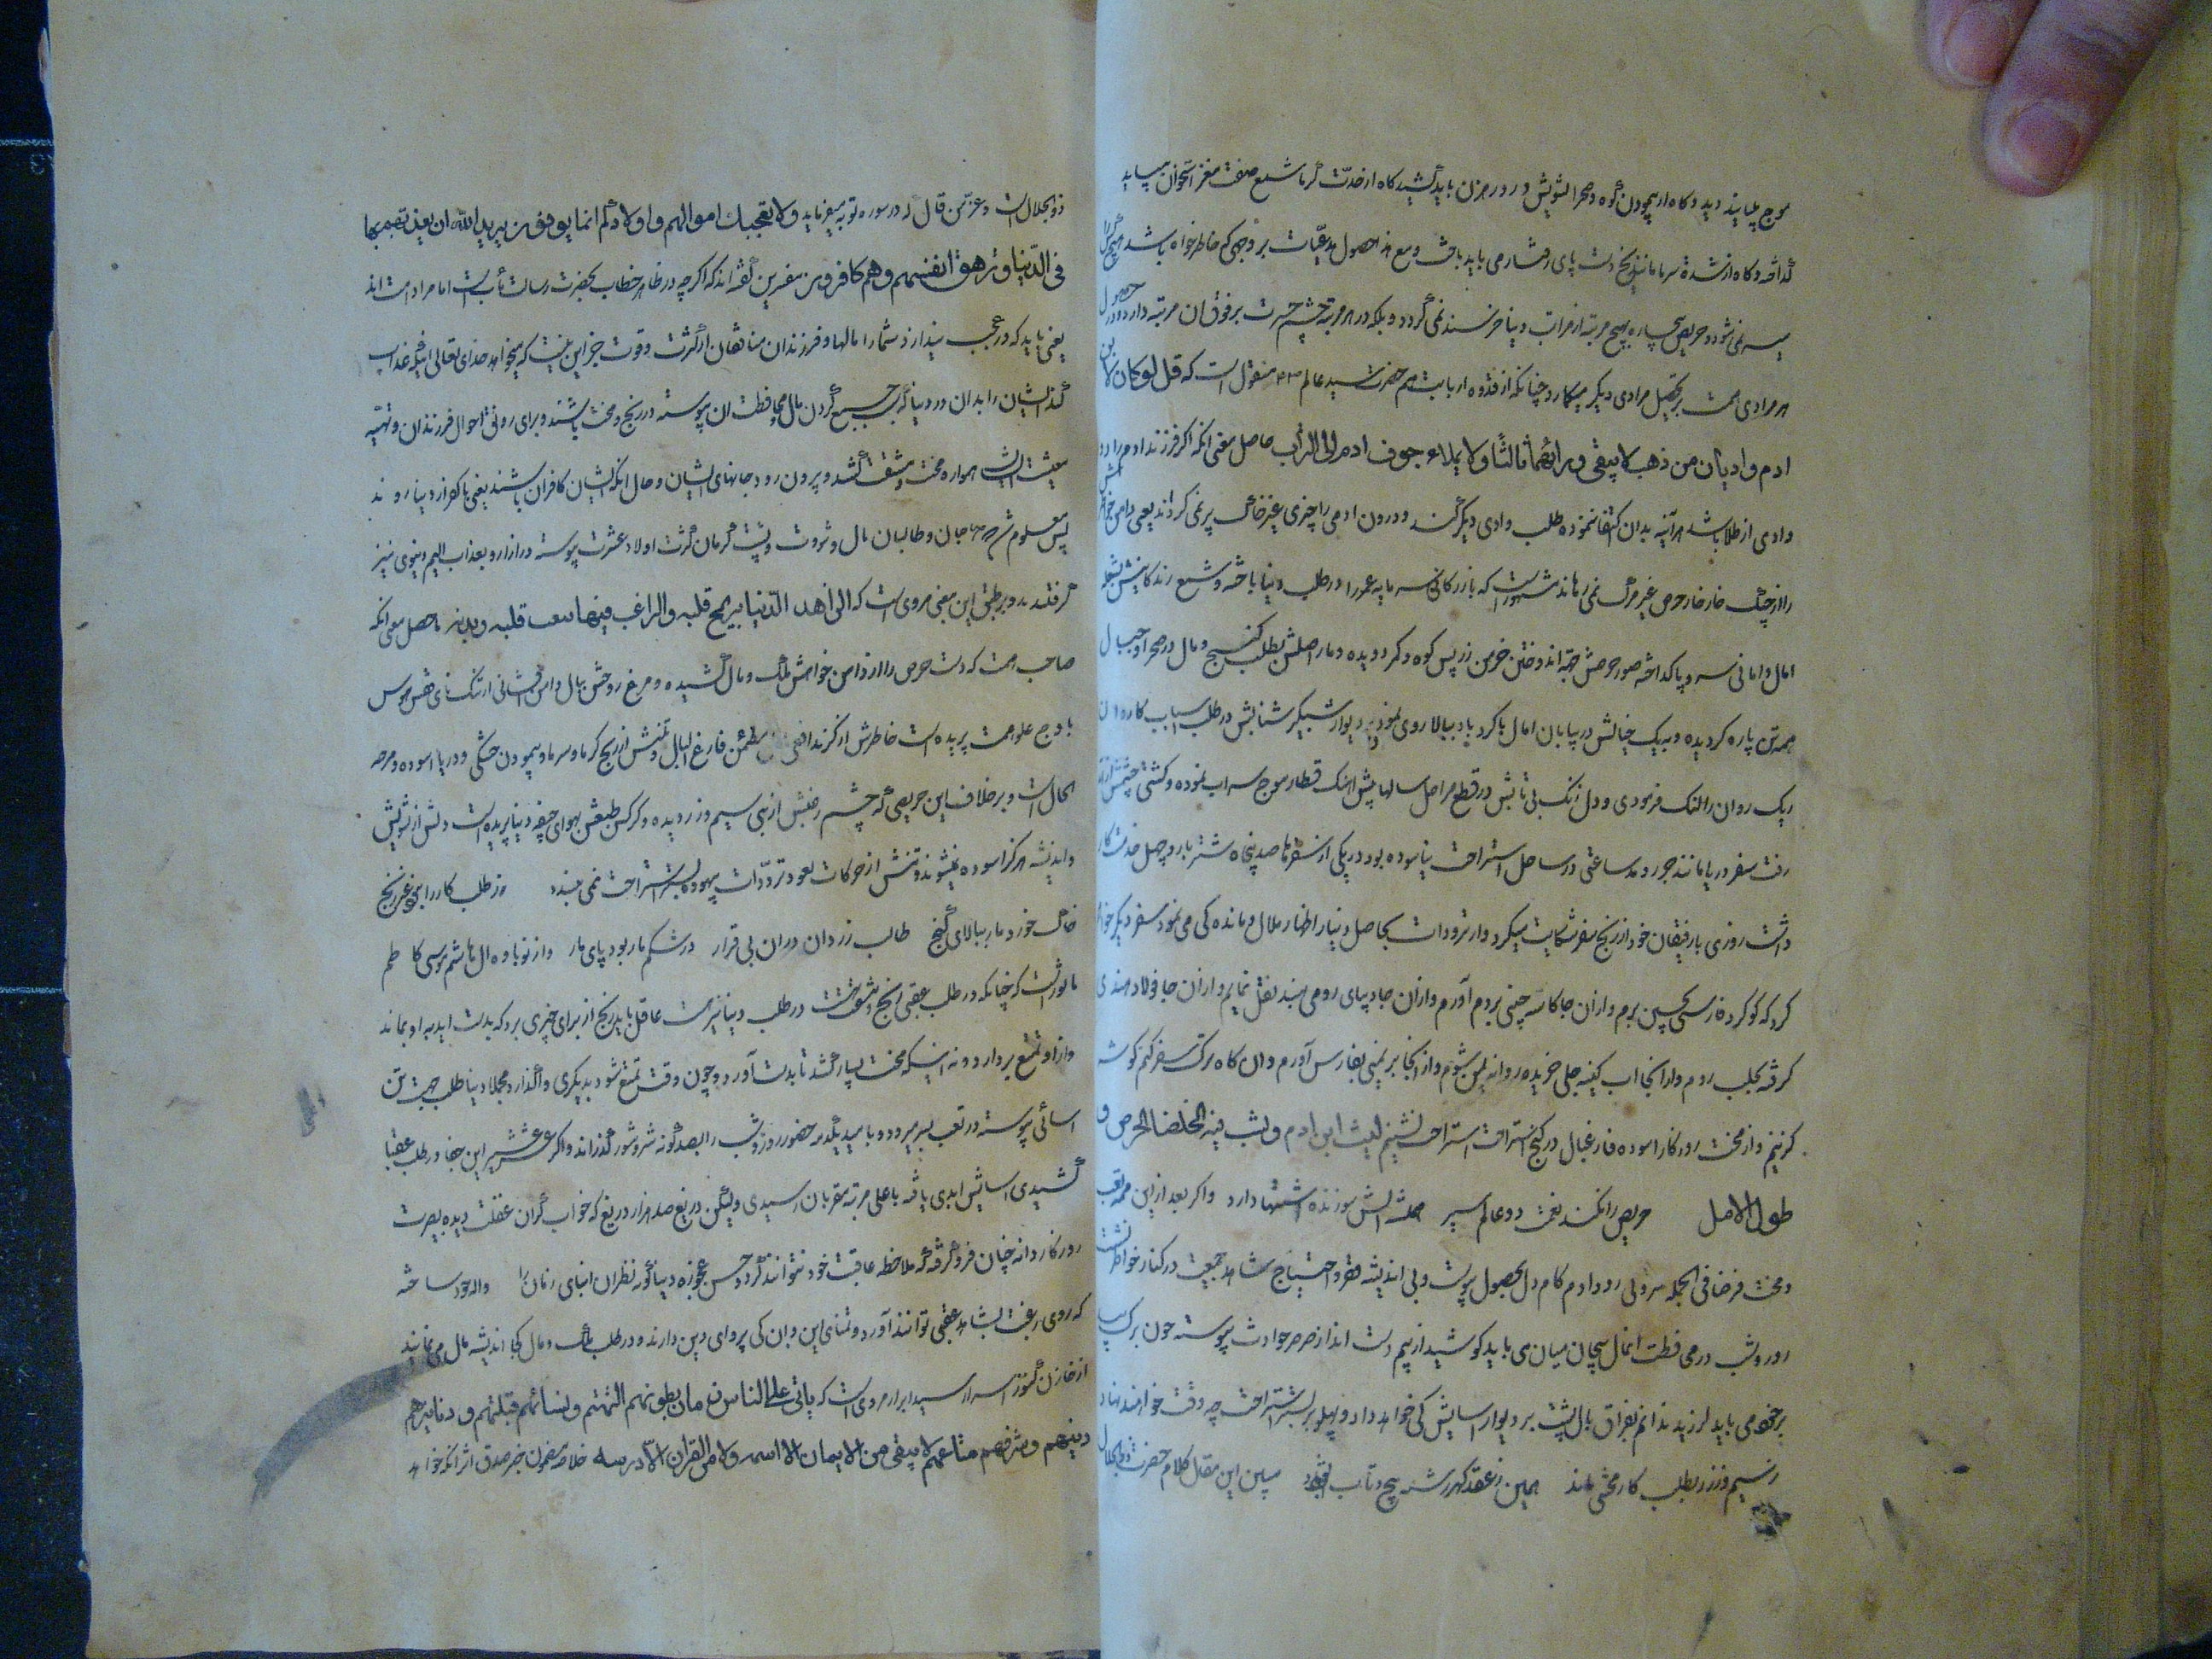 موج پلپاید دید و کاه از پیمودن کوه و صحرا تشویش و رو رهزن باید کشید کاه از حدّت کرما شمع صفت مغز استخوان میباید
کداخت و کاه از شدة سرما مانند یخ دست پای رفتار می باید باخت و مع هذا حصول مدعیّات بر وجهی که خاطر خواه باشد هیچ کس را
میسر نمی شود و حریص بیچاره بهیچ مرتبه از مراتب دنیا خرسند نمی کردد و بلکه در هر مرتبه چشم حسرت بر فوق ان مرتبه دارد و در حصول
هر مرادی همت بر تحصیل مرادی دیکر میکمارد چنانکه از قدوه ارباب همم حضرت سید عالم منقول است که قل لو کان لابن
ادم وادیان من ذهب لابتغی ورائهما ثالثا ولا یملاء جوف ادم الی التراب حاصل معنی انکه اکر فرزند ادم را دو
وادی از طلا باشد هر آینه بدان اکتفا ننموده طلب وادی دیکر کند و درون ادمی را چیزی بغیر خاک پر نمی کرداند یعنی دامن خواهش
را از چنک خار خار حرص غیر مرک نمی رهاند مشهور است که بازرکانی سرمایه عمر را در طلب دنیا باخته و شمع زندکانیش بشعله
امال و امانی سر و پا کداخته صور حرصش جهة اندوختن خرمن زر پس کوه و کمر دویده و مار املش بطلب کنج و مال در صحرا و جبال
همه تن پاره کردیده و پیک خیالش در بیابان امال با کرد باد ببالا روی نموده دیوار شبکیر شتابش در طلب اسباب کاروان
ریک روان را لنک فرمودی و دل زنک بی تابش در قطع مراحل سالها پیش اهنک قطار موج سراب نموده و کشتی چشمش از
رفت سفر دریا مانند جزر و مد ساعتی در ساحل استراحت نیاسوده بود در یکی از سفرها صد پنجاه شتر بار و چهل خدمتکار
داشت روزی با رفیقان خود از رنج سفر شکایت میکرد و از ترددات بیحاصل دنیا اظهار ملال و ماندکی می نمود سفر دیکر خواهم
کرد که کوکرد فارسی بچین برم و از ان جا کاسه چینی بروم آورم و از ان جا دیبای رومی بهند نقل نمایم و از ان جا فولاد هندی
کرفته بحلب روم و از انجا اب کینه حلبی خریده روانه یمن شوم و از انجا برد یمنی بفارس آورم و ان کاه ترک سفر کنم کوشه
کزینم و از محنت روزکار اسوده فارغبال در کنج استراحت نشینم یشیب ابن ادم ویشب فیه الخصلتان الحرص و
طول الامل حریص را نکند نعمت دو عالم سیر همیشه آتش سوزنده اشتها دارد و اکر بعد از این همه تعب
و محنت فرضا فی الجمله سر و لی رو داد هم کام دل بحصول پیوست و بی اندیشه فقر و احتیاج شاهد جمعیت در کنار خواطر نشست
روز و شب در محافظت انمال بجان میان می باید کوشید از بیم دست انداز صرصر حوادث پیوسته چون برک بید
بر خود می باید لرزید ندانم بفراق بال پشت بر دیوار اسایش کی خواهد داد و پهلو بر بستر استراحت چه وقت خواهد نهاد
ز سیم و زر بطلب کار محنتی ماند همین ز عقد کهر رشته پیچ و تاب خورد مبین این مقال کلام حضرت ذو الجلال
ذو الجلال است و عزّ من قال که در سوره توبه میفرماید ولا تعجبک اموالهم واولادکم انما یرید الله ان یعذبهم بها
فی الدّنیا وتزهق انفسهم وهم کافرون مفسرین کفته اند که اکرچه در ظاهر خطاب بحضرت رسالت مآب است اما مراد امت اند
یعنی باید که در عجب نیندازد شما را مالها و فرزندان منافقان از کثرت و قوت جز این نیست که میخواهد خدای تعالی اینکه عذاب
کند ایشان را بدان در دنیا که بسبب جمع کردن مال و محافظت ان پیوسته در رنج و محنت باشند و برای رونق احوال فرزندان و تهیه
معیشت ایشان همواره محنت و مشقت کشند و بیرون رود جانهای ایشان و حال انکه ایشان کافران باشند یعنی با کفر از دنیا روند
پس معلوم شد که صاحبان و طالبان مال و ثروت و پشت کرمان کثرت اولاد و عشرت پیوسته در ازار و بعذاب الیم دنیوی نیز
کرفتند و بر طبق این معنی مروی است که الزاهد الدّنیا یریح قلبه والراغب فیها یتعب قلبه وبدنه حاصل معنی انکه
صاحب همت که دست حرص را از دامن خواهش ملک و مال کشیده و مرغ روحش ببال دامن فشانی از تنک نای قفس هوس
باوج علو همت پریده است خاطرش از کزند افعی مطمئن فارغ البال و تنش از رنج کرما و سرما و پیمودن خشکی و دریا اسوده و مرفه
الحال است و بر خلاف این حریصی که چشم رغبتش از پی سیم و زر دویده و کرکس طبعش بهوای جیفه دنیا پریده است دلش از تشویش
و اندیشه هرکز اسوده نمیشود و تنش از حرکات لغو و تردّدات بیهوده بستر استراحت نمی بیند ز طلب کار را بجز غم رنج
خاک خورد مار ببالای کنج طالب زر دان دران بی قرار در شکم مار بود پای مار و از نوباوه ال هاشم موسی کاظم
ماثور است که چنانکه در طلب عقبی رنج و مشقت است در طلب دنیا نیز هست عاقل باید رنج از برای چیزی برد که بدست اید با او بماند
و از او تمتع بردارد و نه اینکه محنت بسیار کشد تا بدست آورد و چون وقت تمتع شود بدیکری واکذارد مجملا دنیا طلب جهت تن
اسائی پیوسته در تعب بسر میبرد و بامید یکدمه حضور روز و شب را بصد کونه شر و شور کذراند و اکر عشر عشیر این جفا در طلب عقبا
کشیدی اسایش ابدی یافته باعلی مرتبه مقربان رسیدی و لیکن دریغ صد هزار دریغ که خواب کران غفلت دیده بصیرت
روزکار دانه چنان فرو کرفته که ملاحظه عاقبت خود نتوانند کرد و حسن عجوزه دنیا کوته نظران ابنای زمان را واله خود ساخته
که روی رغبت بشاهد عقبی توانند آورد و تمنای این و ان کی پروای دین دارند و در طلب ملک و مال کجا اندیشه مال می نمایند
از خازن کنوز اسرار سید ابرار مروی است که یاتی علی الناس زمان بطونهم الهتهم ونسائهم قبلتهم ودنانیرهم
دینهم وشرفهم متاعهم لا یبقی من الایمان الا اسمه ولا من القران الّا درسه خلاصه مضمون خبر صدق اثر انکه خواهد